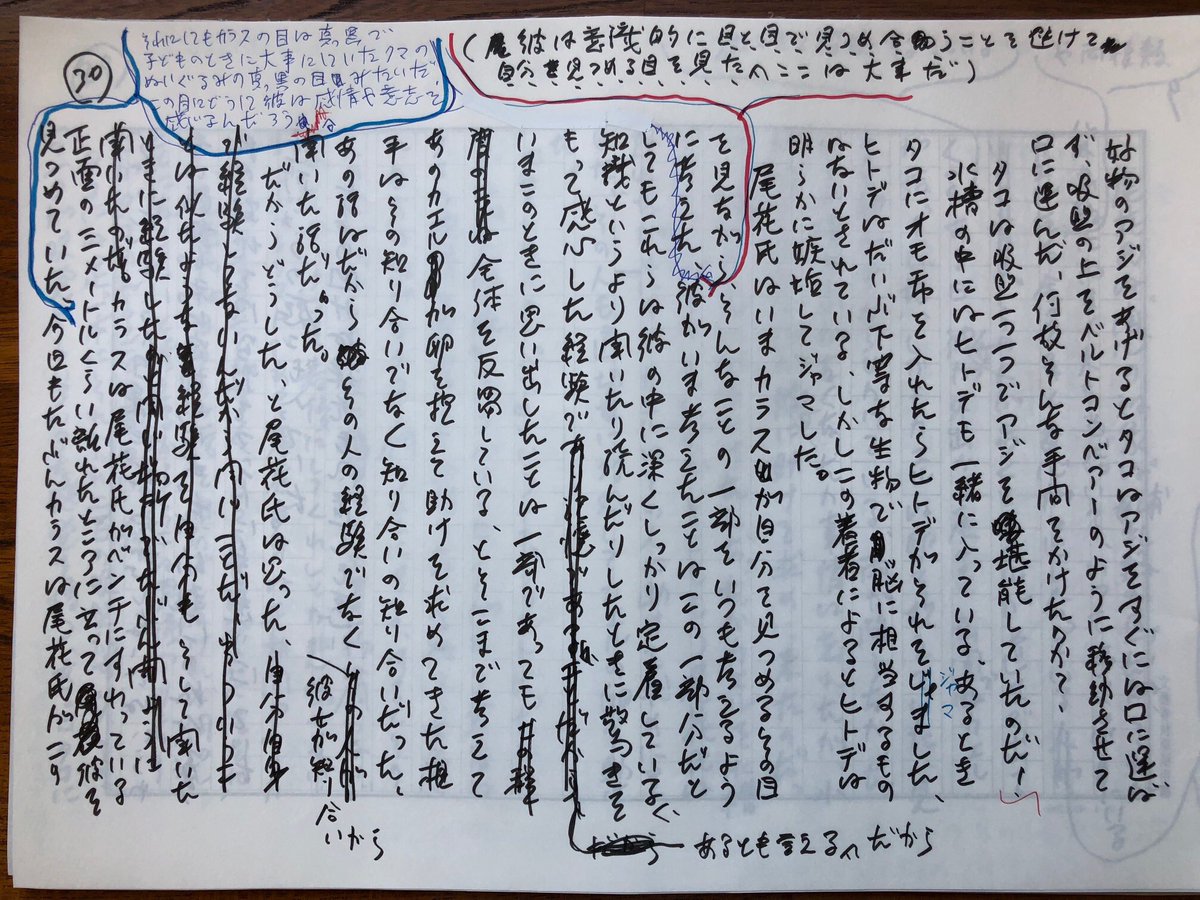 好物のアジをあげるとタコはアジをすぐには口に運ば
ず、吸盤の上をベルトコンベアーのように移動させて
口に運んだ、何故そんな手間をかけたのか?、
タコは吸盤一つ一つでアジを堪能していたのだ!
水槽の中にはヒトデも一緒に入っている、あるとき
タコにオモチャを入れたらヒトデがそれをジャマした、
ヒトデはだいぶ下等な生物で脳に相当するもの
はないとされている、しかしこの著者によるとヒトデは
明らかに嫉妬してジャマした。
尾花氏はいまカラスが自分で見つめるその目
を見ながらそんなことの一部をいつも考えるよう
に考えた、彼がいま考えたことはこの一部分だと
してもこれらは彼の中に深くしっかり定着している、
知識というより聞いたり読んだりしたときに驚きを
もって感心した経験で
あるとも言える、だから
いまこのときに思い出したことは一部であってもその群
全体を反芻している、とそこまで考えて
あのカエルが卵を抱えて助けを求めてきた相
手はその知り合いでなく知り合いの知り合いだった、
あの話はだからその人の経験でなく
彼女が知り合いから
聞いた話だった。
だからどうした、と尾花氏は思った、自分自身
が経験したのでないんだから同じことだ、
とは似たような経験を自分もそして聞いた
聞いたのだ。カラスは尾花氏がベンチにすわっている
正面の二メートルくらい離れたところに立って彼を
見つめていた、今日もたぶんカラスは尾花氏がこす
(彼は意識的に目と目で見つめ合うことを避けて
自分を見つめる目を見た、ここは大事だ)
それにしてもカラスの目は真っ黒で、
子どものときに大事にしていたクマの
ぬいぐるみの真っ黒の目みたいだ、
この目にどうして彼は感情や意志を
感じるんだろう
30